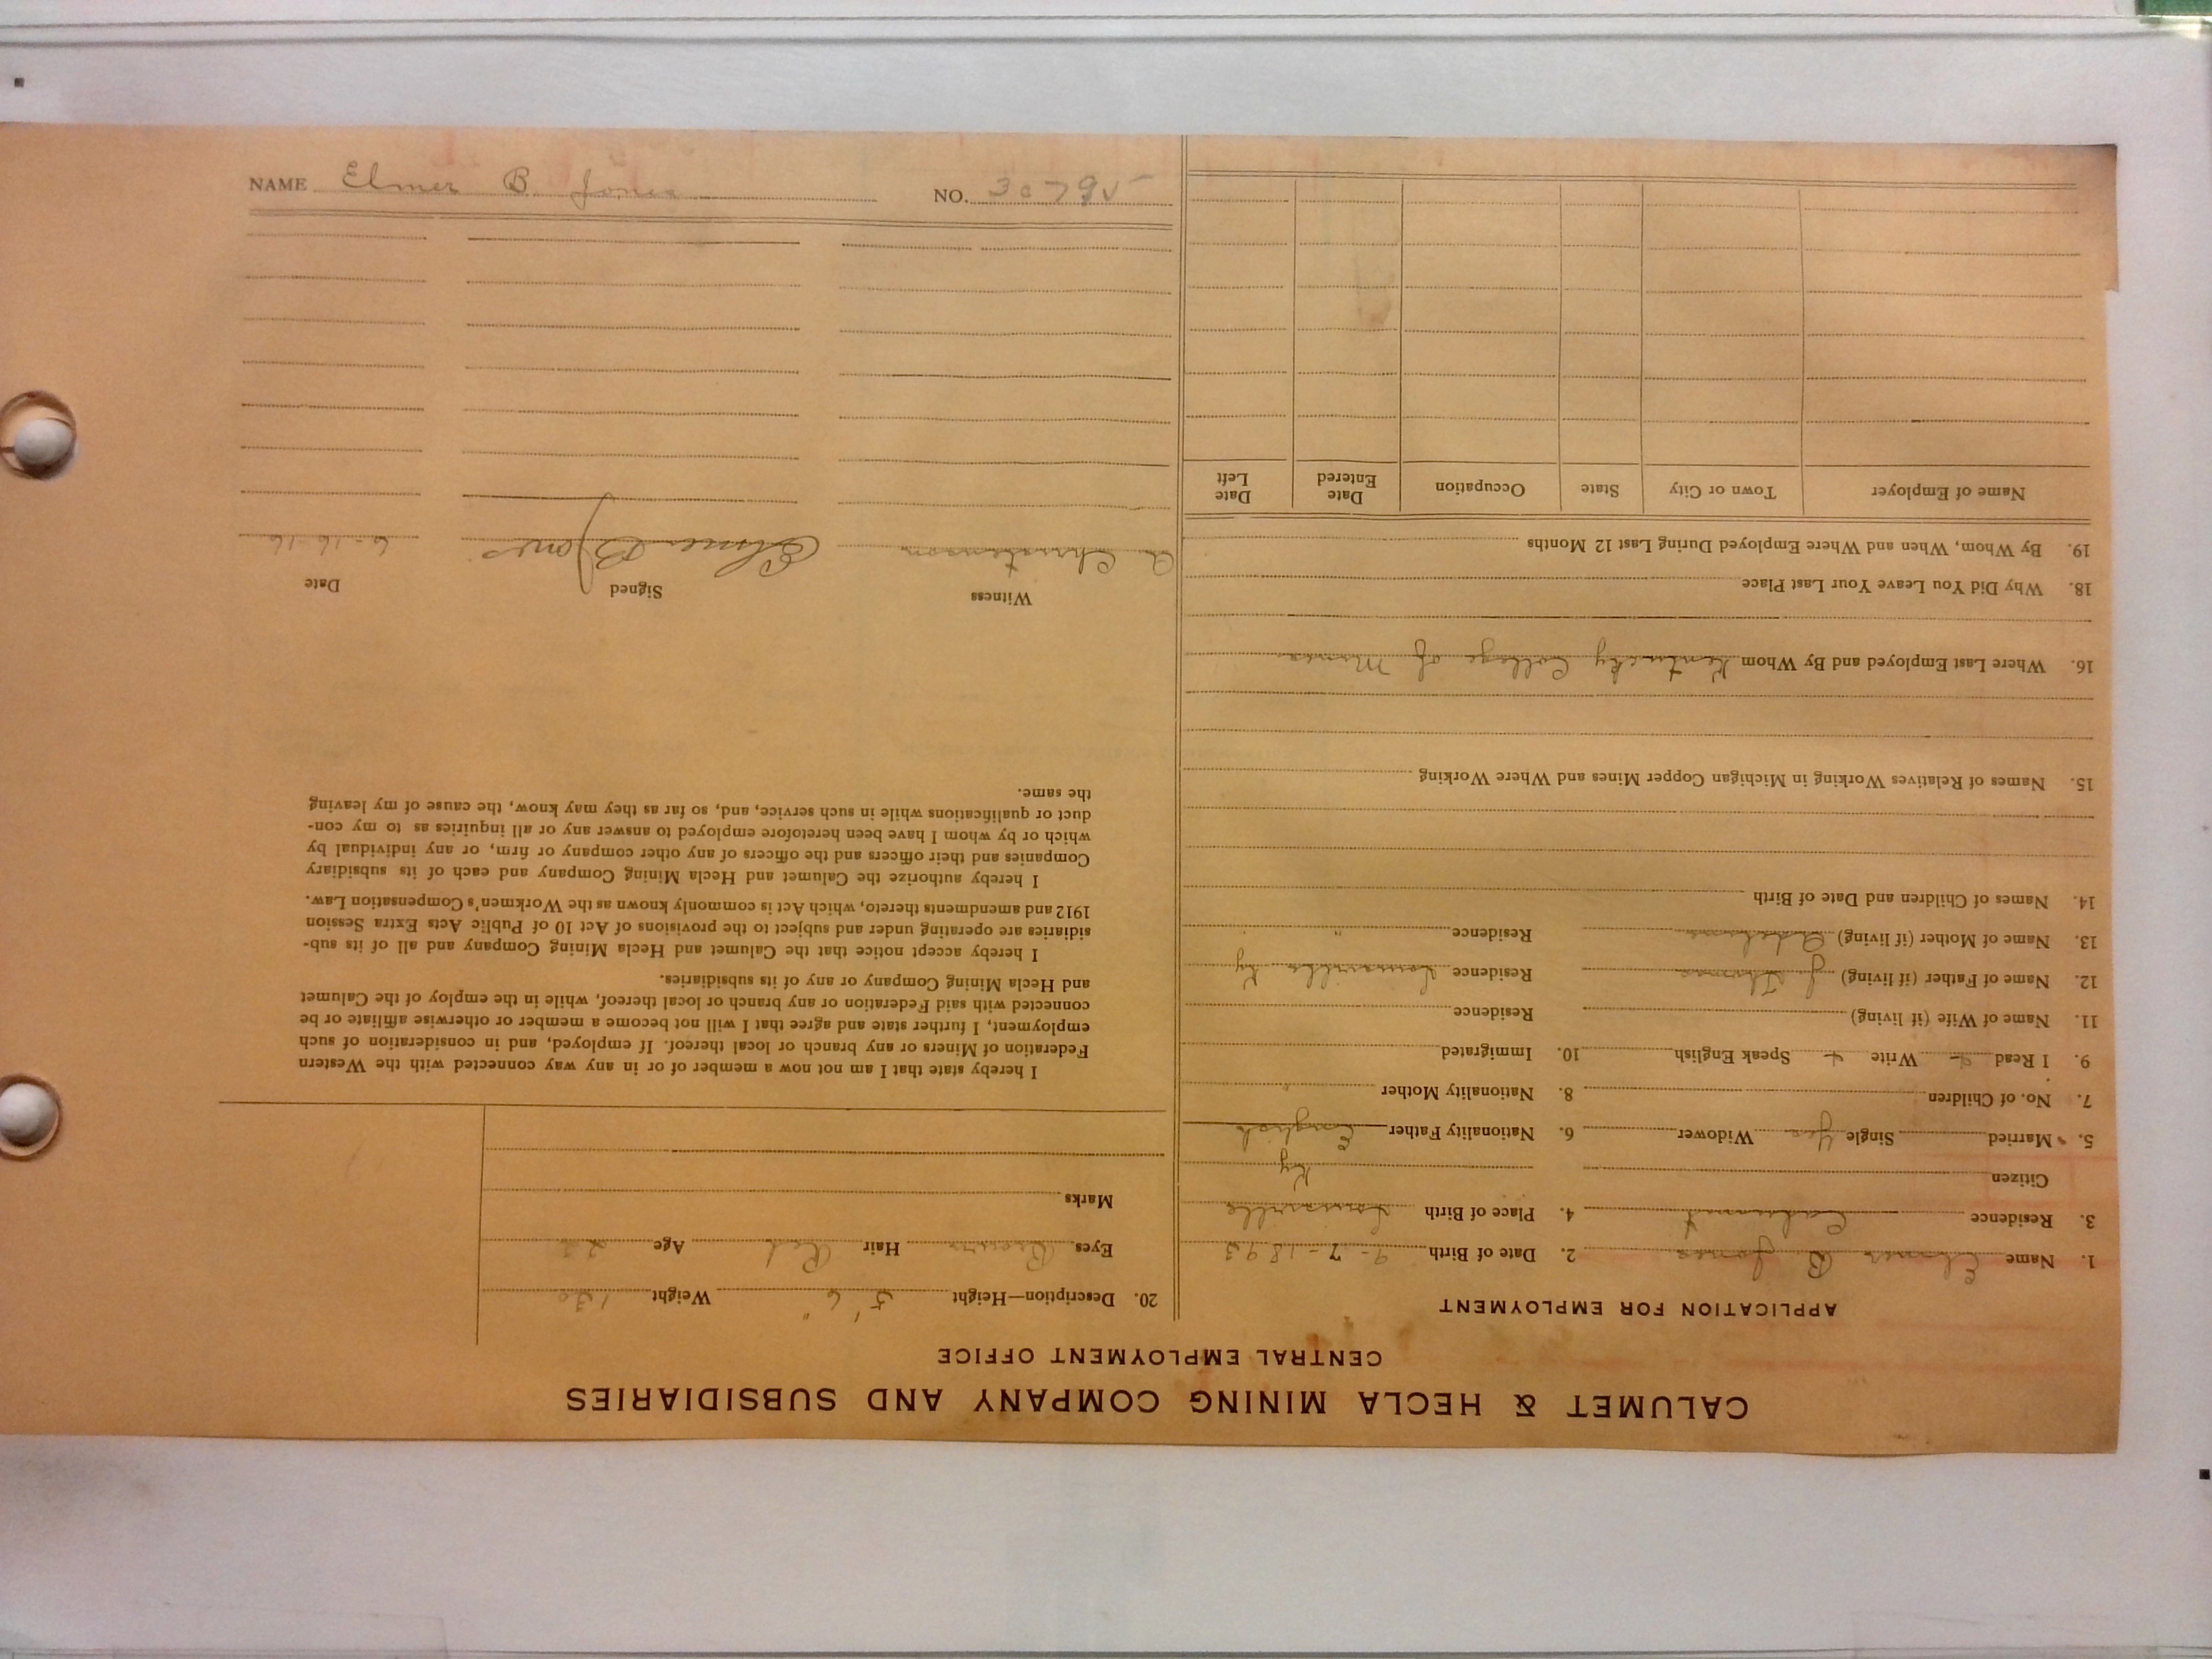 CALUMET & HECLA MINING COMPANY AND SUBSIDIARIES
CENTRAL EMPLOYMENT OFFICE
APPLICATION FOR EMPLOYMENT
1. Name Elmer B. Jones 2. Date of Birth 9-7-1893
3. Residence Calumet 4. Place of Birth Louisville
Citizen Ky
5. Married Single Yes Widower 6. Nationality Father English
7. No. of Children 8. Nationality Mother "
9. I Read Write Speak English 10. Immigrated
11. Name of Wife (if living) Residence
12. Name of Father (if living) J. Residence Louisville Ky
13. Name of Mother (if living) Residence "
14. Names of Children and Date of Birth
15. Names of Relatives Working in Michigan Copper Mines and Where Working
16. Where Last Employed and By Whom Kentucky College of Mines
18. Why Did You Leave Your Last Place
19. By Whom, When and Where Employed During Last 12 Months
Name of Employer Town or City State Occupation Date Entered Date Left
20. Description—Height 5' 6" Weight 130
Eyes Brown Hair Red Age 22
Marks
I hereby state that I am not now a member of or in any way connected with the Western
Federation of Miners or any branch or local thereof. If employed, and in consideration of such
employment, I further state and agree that I will not become a member or otherwise affiliate or be
connected with said Federation or any branch or local thereof, while in the employ of the Calumet
and Hecla Mining Company or any of its subsidiaries.
I hereby accept notice that the Calumet and Hecla Mining Company and all of its sub-
sidiaries are operating under and subject to the provisions of Act 10 of Public Acts Extra Session
1912 and amendments thereto, which Act is commonly known as the Workmen's Compensation Law.
I hereby authorize the Calumet and Hecla Mining Company and each of its subsidiary
Companies and their officers and the officers of any other company or firm, or any individual by
which or by whom I have been heretofore employed to answer any or all inquiries as to my con-
duct or qualifications while in such service, and, so far as they may know, the cause of my leaving
the same.
Witness Signed Date
A Christenson Elmer B Jones 6-16-16
NAME Elmer B. Jones NO. 30795